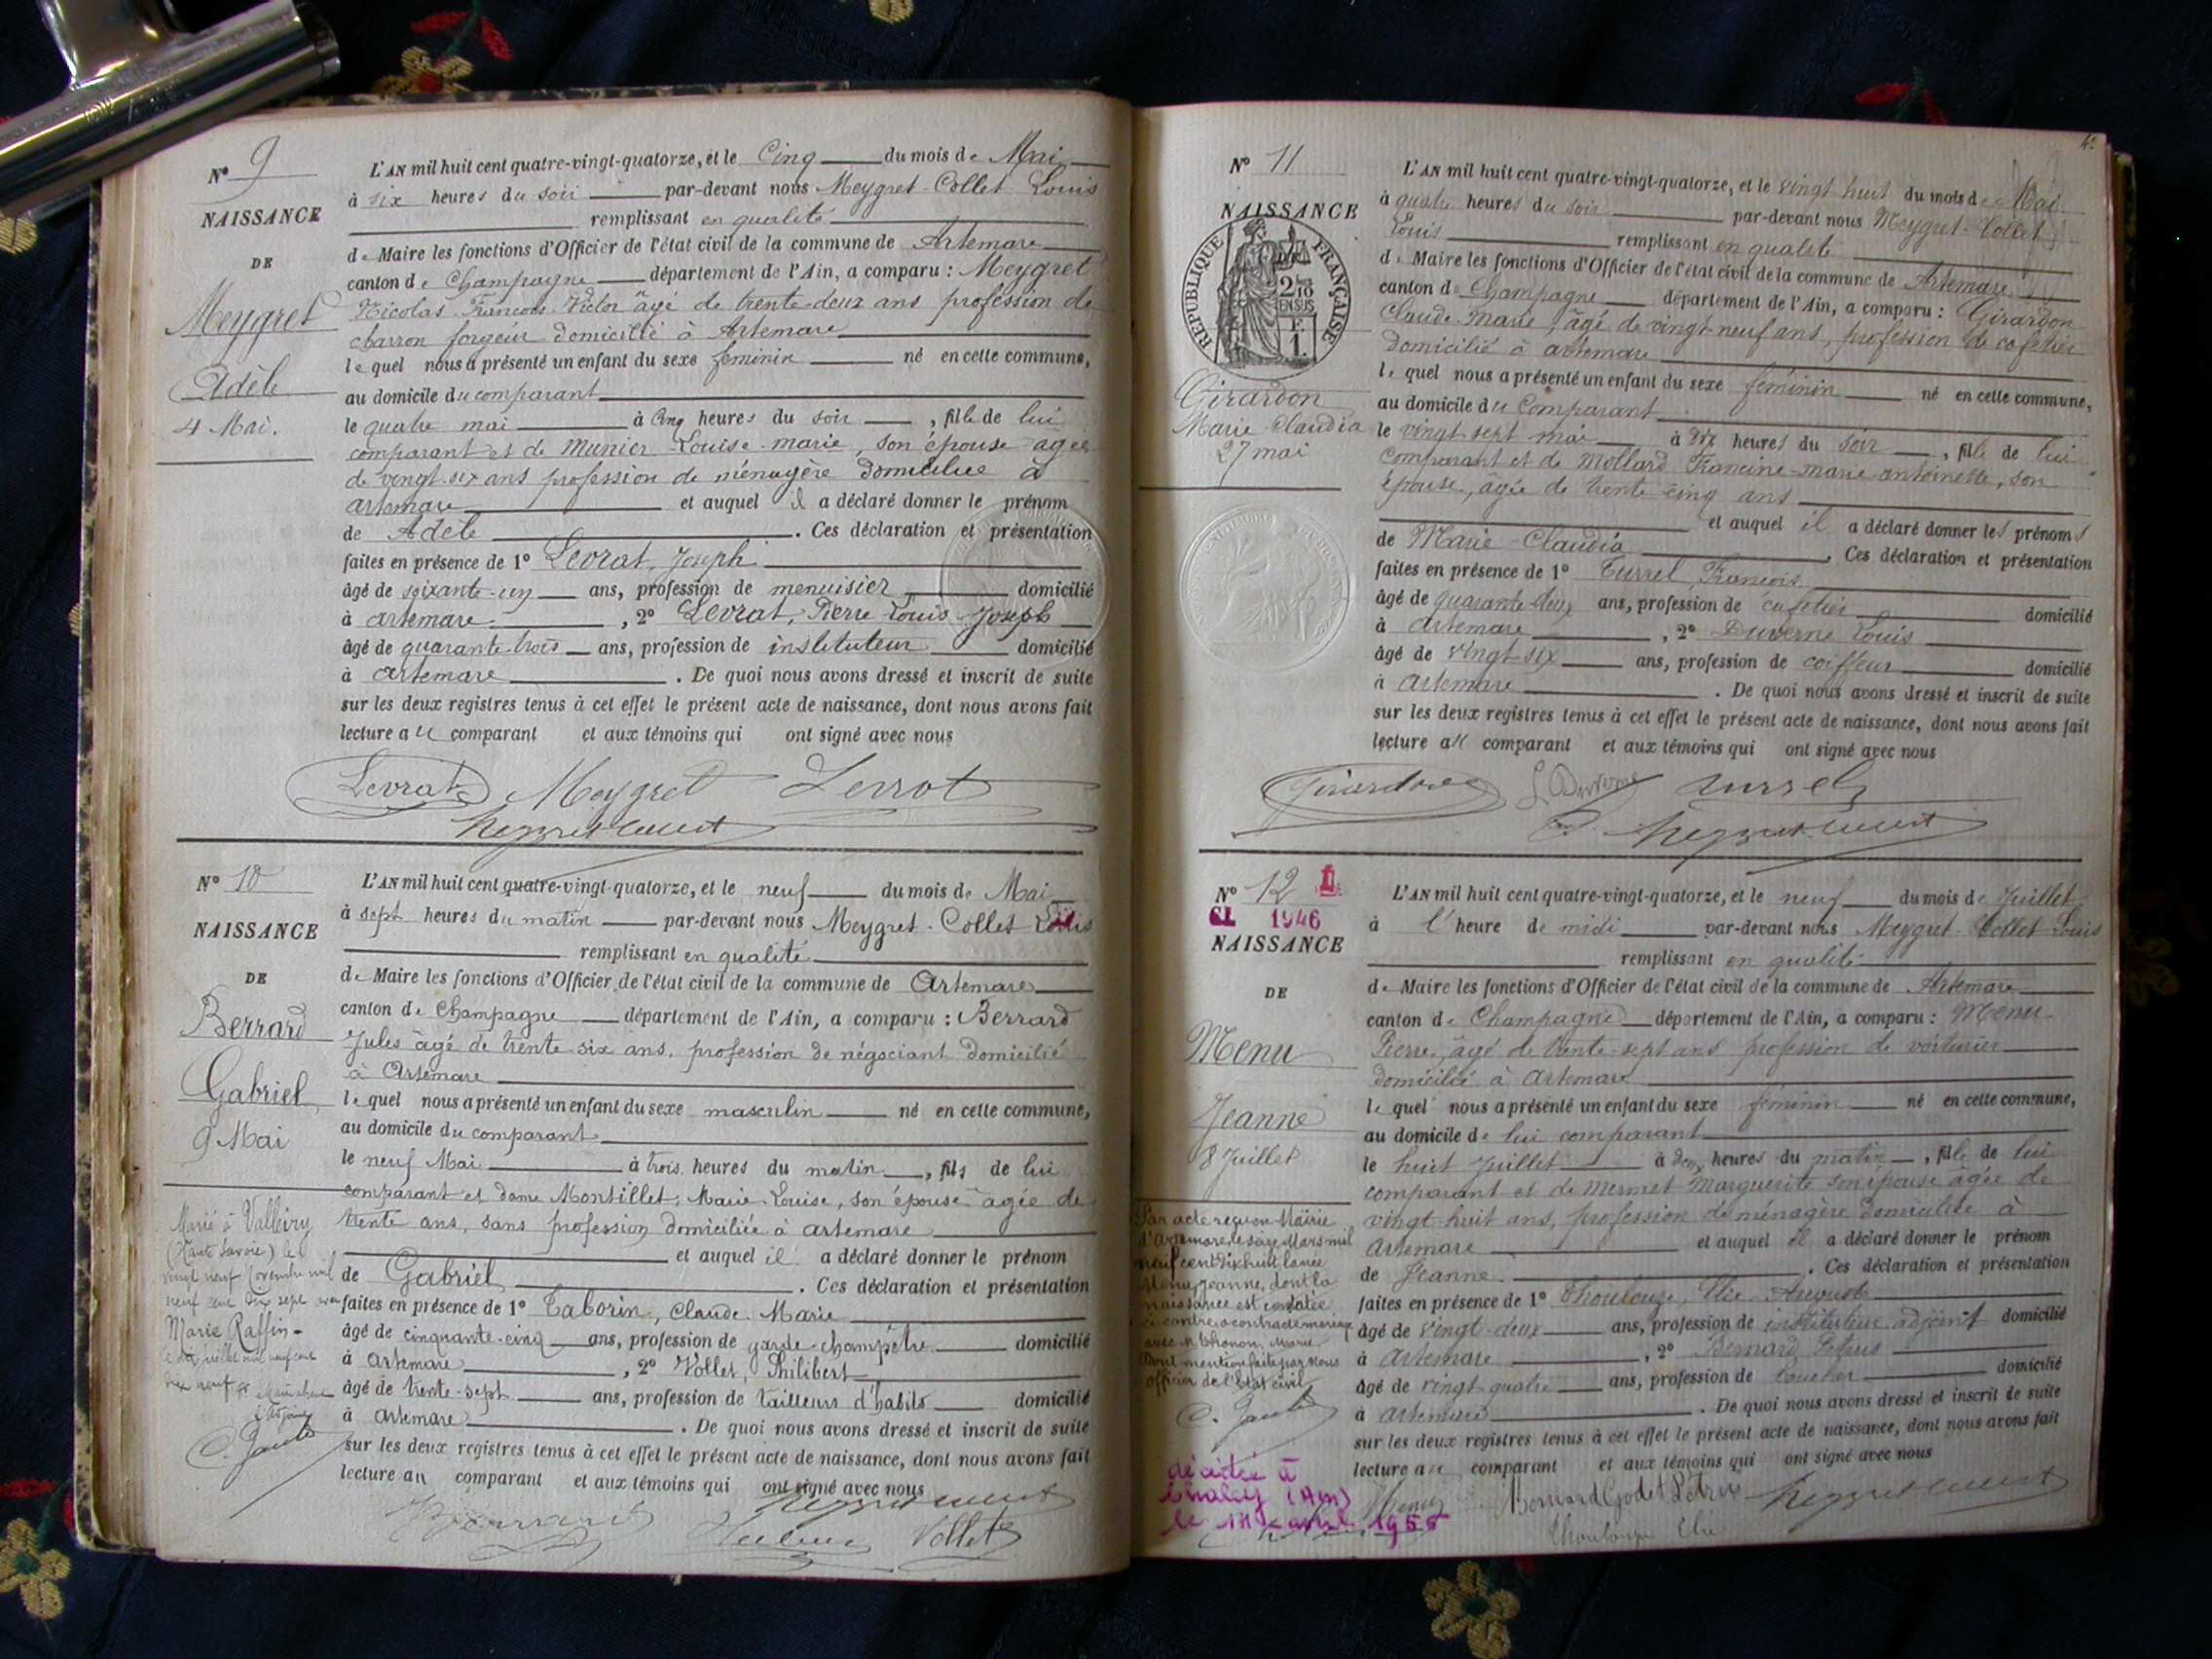 N° 9
NAISSANCE
DE
Meygret
Adèle
4 Mai.
L'AN mil huit cent quatre-vingt-quatorze, et le Cinq du mois de Mai
à six heures du soir par-devant nous Meygret-Collet Louis
remplissant en qualité
de Maire les fonctions d'Officier de l'état civil de la commune de Artemare
canton de Champagne département de l'Ain, a comparu : Meygret
Nicolas François Victor âgé de trente-deux ans profession de
charron forgeur domicilié à Artemare
lequel nous a présenté un enfant du sexe féminin né en cette commune,
au domicile du comparant
le quatre mai à cinq heures du soir, fille de lui
comparant et de Munier Louise-marie, son épouse agée
de vingt-six ans profession de ménagère domiciliée à
artemare et auquel il a déclaré donner le prénom
de Adèle. Ces déclaration et présentation
faites en présence de 1° Levrat, Joseph
âgé de soixante-un ans, profession de menuisier domicilié
à artemare, 2° Levrat, Pierre Louis Joseph
âgé de quarante-trois ans, profession de instituteur domicilié
à Artemare. De quoi nous avons dressé et inscrit de suite
sur les deux registres tenus à cet effet le présent acte de naissance, dont nous avons fait
lecture au comparant et aux témoins qui ont signé avec nous
Levrat Meygret Levrat
N° 10
NAISSANCE
DE
Berrard
Gabriel
9 Mai
L'AN mil huit cent quatre-vingt-quatorze, et le neuf du mois de Mai
à sept heures du matin par-devant nous Meygret-Collet Louis
remplissant en qualité
de Maire les fonctions d'Officier de l'état civil de la commune de Artemare
canton de Champagne département de l'Ain, a comparu : Berrard
Jules âgé de trente-six ans, profession de négociant domicilié
à Artemare
lequel nous a présenté un enfant du sexe masculin né en cette commune,
au domicile du comparant
le neuf Mai à trois heures du matin, fils de lui
comparant et dame Montillet, Marie-Louise, son épouse agée de
trente ans, sans profession domiciliée à artemare
et auquel il a déclaré donner le prénom
de Gabriel. Ces déclaration et présentation
faites en présence de 1° Taborin, Claude-Marie
âgé de cinquante-cinq ans, profession de garde-champêtre domicilié
à artemare, 2° Vollet, Philibert
âgé de trente-sept ans, profession de tailleurs d'habits domicilié
à artemare. De quoi nous avons dressé et inscrit de suite
sur les deux registres tenus à cet effet le présent acte de naissance, dont nous avons fait
lecture au comparant et aux témoins qui ont signé avec nous
Marié à Valleiry
(Haute Savoie) le
vingt neuf novembre mil
neuf cent dix sept avec
Marie Raffin-
l'adjoint
Berrard Vollet
4
N° 11
NAISSANCE
REPUBLIQUE FRANÇAISE
2/10
EN SUS
Girardon
Marie Claudia
27 mai
L'AN mil huit cent quatre-vingt-quatorze, et le vingt huit du mois de Mai
à quatre heures du soir par-devant nous Meygret-Collet
Louis remplissant en qualité
de Maire les fonctions d'Officier de l'état civil de la commune de Artemare
canton de Champagne département de l'Ain, a comparu : Girardon
Claude Marie, âgé de vingt-neuf ans, profession de cafetier
domicilié à artemare
lequel nous a présenté un enfant du sexe féminin né en cette commune,
au domicile du Comparant
le vingt sept mai à dix heures du soir, fille de lui
comparant et de Mollard Francine-marie antoinette, son
épouse, âgée de trente cinq ans
et auquel il a déclaré donner les prénoms
de Marie Claudia. Ces déclaration et présentation
faites en présence de 1° Turrel, François
âgé de quarante-deux ans, profession de cafetier domicilié
à artemare, 2° Duverne Louis
âgé de vingt-six ans, profession de coiffeur domicilié
à artemare. De quoi nous avons dressé et inscrit de suite
sur les deux registres tenus à cet effet le présent acte de naissance, dont nous avons fait
lecture au comparant et aux témoins qui ont signé avec nous
Girardon L Duverne Turrel
N° 12
1946
NAISSANCE
DE
Menu
Jeanne
8 Juillet
L'AN mil huit cent quatre-vingt-quatorze, et le neuf du mois de Juillet
à l'heure de midi par-devant nous Meygret-Collet Louis
remplissant en qualité
de Maire les fonctions d'Officier de l'état civil de la commune de Artemare
canton de Champagne département de l'Ain, a comparu : Menu
Pierre, âgé de trente-sept ans profession de voiturier
domicilié à Artemare
lequel nous a présenté un enfant du sexe féminin né en cette commune,
au domicile de lui comparant
le huit Juillet à deux heures du matin, fille de lui
comparant et de Mermet Marguerite son épouse âgée de
vingt-huit ans, profession de ménagère domiciliée à
Artemare et auquel il a déclaré donner le prénom
de Jeanne. Ces déclaration et présentation
faites en présence de 1° Thoulouze, Elie-Auguste
âgé de vingt-deux ans, profession de instituteur adjoint domicilié
à Artemare, 2° Bernard Petrus
âgé de vingt-quatre ans, profession de domicilié
à artemare. De quoi nous avons dressé et inscrit de suite
sur les deux registres tenus à cet effet le présent acte de naissance, dont nous avons fait
lecture au comparant et aux témoins qui ont signé avec nous
Par acte reçu en Mairie
d'Artemare, le seize Mars mil
neuf cent dix huit la née
Menu Jeanne, dont la
naissance est constatée
ci contre, a contracté mariage
avec M. Thonon, Marie
Dont mention faite par nous
officier de l'état civil
décédée à
(Ain)
le
Menu Bernard Godet Petrus
Thoulouze Elie